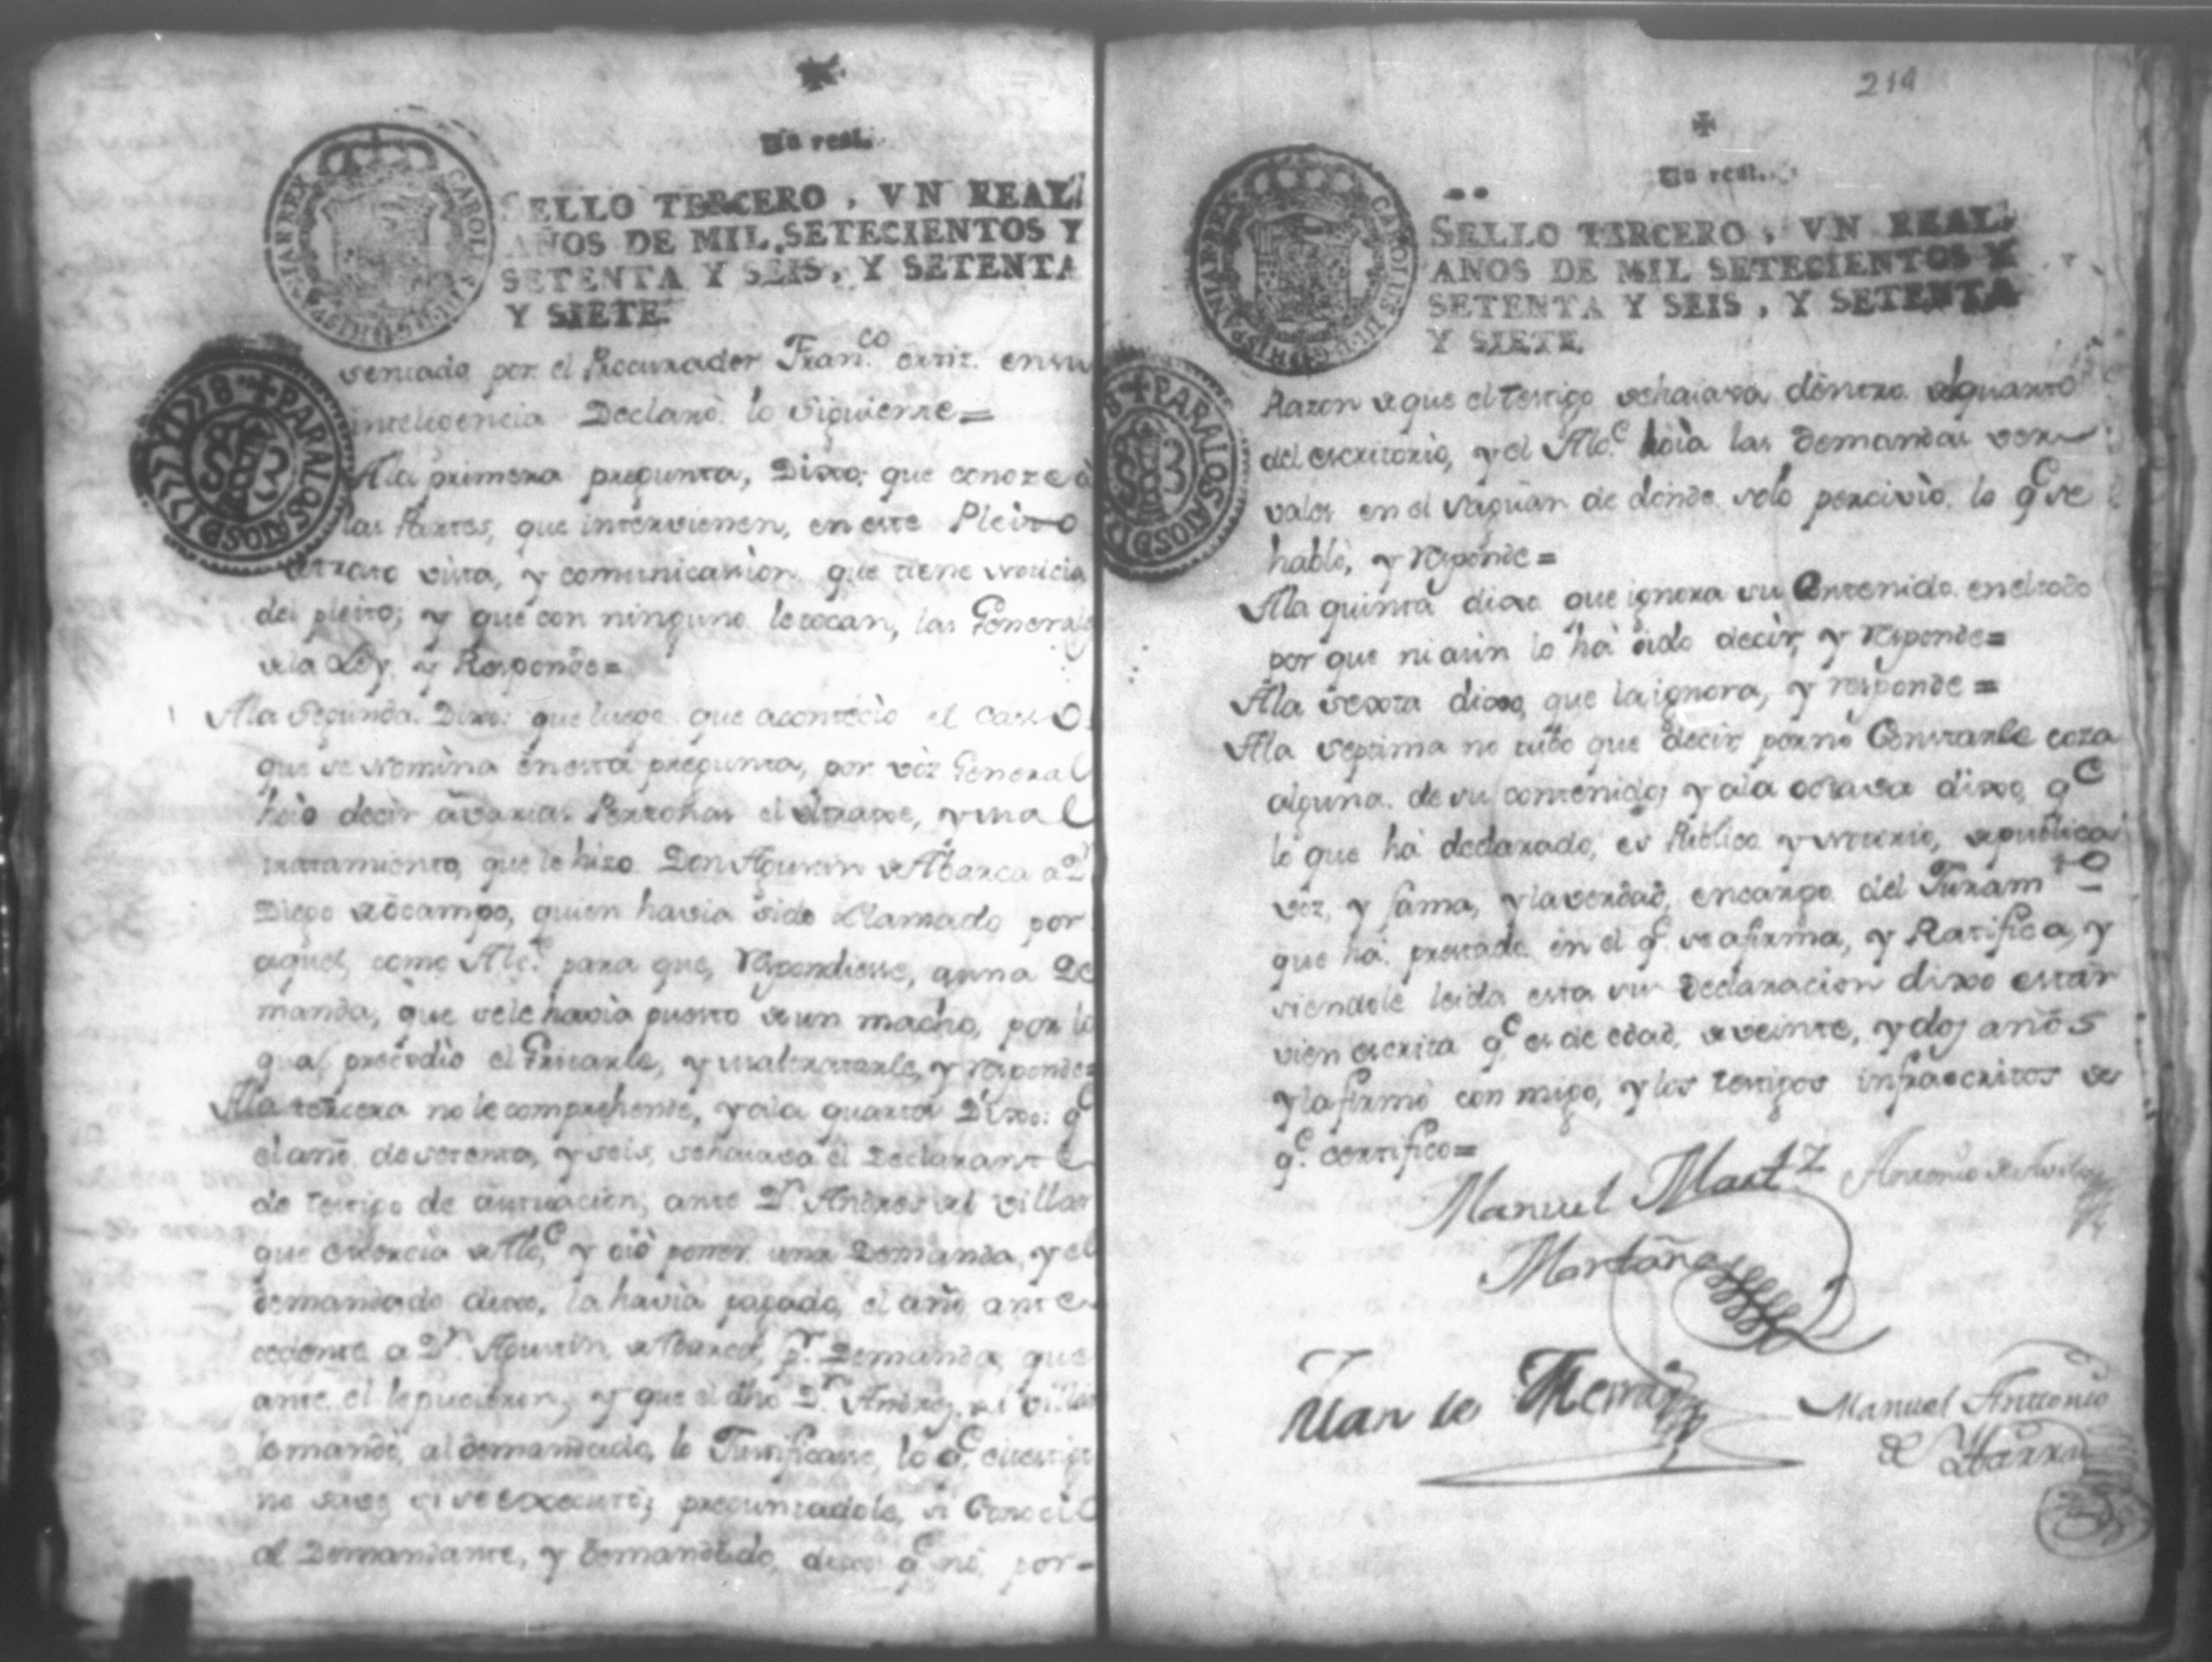 Un real.
SELLO TERCERO, VN REAL,
AÑOS DE MIL SETECIENTOS Y
SETENTA Y SEIS, Y SETENTA
Y SIETE.
CAROLUS III D G HISPANIAR REX
PARA LOS AÑOS D 1777 Y 1778
SB3
sentado por el Procurador Franco ortiz. en su
inteligencia Declaró lo siguiente=
Ala primera pregunta, Dixo: que conoze a
las Partes, que intervienen, en este Pleito
de trato vista, y comunicasion que tiene noticia
del pleito; y que con ninguno le tocan, las Generales
de la Ley, y Responde=
Ala Segunda. Dixo: que luego que acontecio el caso
que se nomina en esta pregunta, por vòz General
hoio decir a varias Perzonas el ultraxe, y mal
tratamiento, que le hizo Don Agustin de Abarca a Dn
Diego de ocampo, quien havia sido llamado por
aquel, como Alce para que, respondiesse, a una De
manda, que se le havia puesto de un macho, por lo
qual procedio el Gritarle, y maltratarle, y responde=
Ala tercera no le comprehende, y ala quarta Dixo: qe
el año de setenta, y seis, se hallava el Declarante
de testigo de actuacion, ante Dn Andres del Villar
que exercia de Alce y oiò poner una Demanda, y el
demandado dixo, la havia pagado, el año ante
cedente a Dn Agustin, de Abarca, pr Demanda, que
ante el le pucieron, y que el dho Dn Andres del Villar
le mandò, al demandado, lo Justificase, lo qe el testigo
no save si se executò; preguntadole, si Conocio
al Demandante, y demandado, dixo qe no por-
214
Un real.
SELLO TERCERO, VN REAL,
AÑOS DE MIL SETECIENTOS Y
SETENTA Y SEIS, Y SETENTA
Y SIETE.
CAROLUS III D G HISPANIAR REX
PARA LOS AÑOS D
S 3
Razon de que el testigo se hallava dentro del quarto
del escritorio, y el Alce hoia las demandas ver
vales en el saguan de donde solo percivio lo qe se
hablò, y responde=
Ala quinta dixo que ignora su Contenido en el todo
por que ni aun lo há oido decir, y responde=
Ala sexta dixo, que la ignora, y responde=
Ala septima no tubo que decir por nò Constarle coza
alguna de su contenido; y ala octava dixo, qe
lo que há declarado, es Publico y notorio, de publica
voz, y fama, y la verdad, en cargo del Juramto
que há prestado en el qe se afirma, y Ratifica, y
siendole leida esta su Declaracion dixo estar
vien escrita qe es de edad, de veinte, y dos años
y la firmò con migo, y los testigos infraescritos de
qe certifico=
Manuel Martz
Montaño
Antonio de Avila
Juan de
Manuel Antonio
de Ibarra